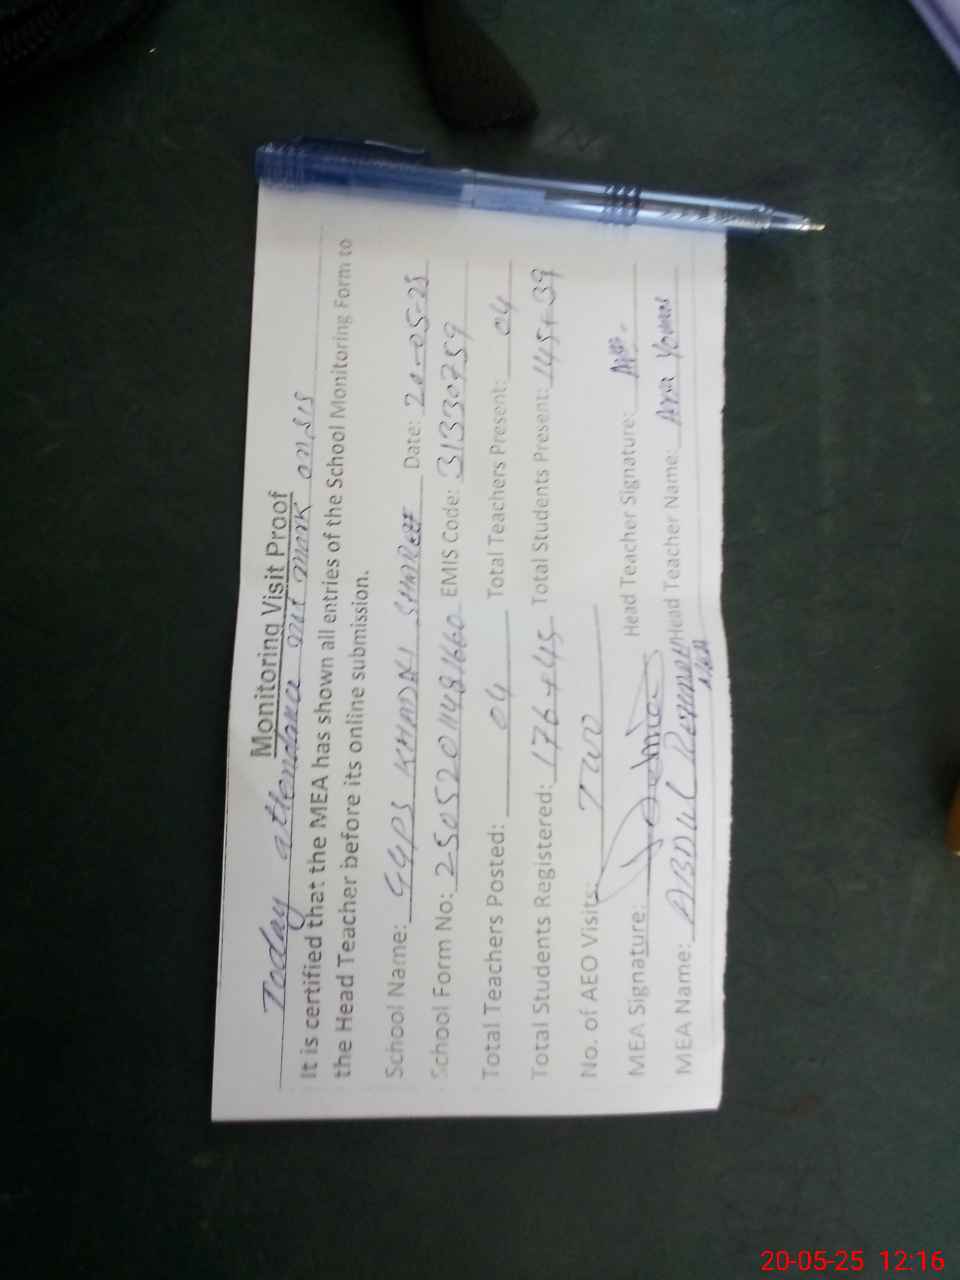 Monitoring Visit Proof
Today attendance not mark on SIS
It is certified that the MEA has shown all entries of the School Monitoring Form to
the Head Teacher before its online submission.
School Name: GGPS KHADALI SHAREEF Date: 20-05-25
School Form No: 25052011481660 EMIS Code: 31330759
Total Teachers Posted: 04 Total Teachers Present: 04
Total Students Registered: 176+45 Total Students Present: 145+39
No. of AEO Visits: TWO
MEA Signature: Head Teacher Signature:
MEA Name: ABDUL Head Teacher Name: Younas
20-05-25 12:16